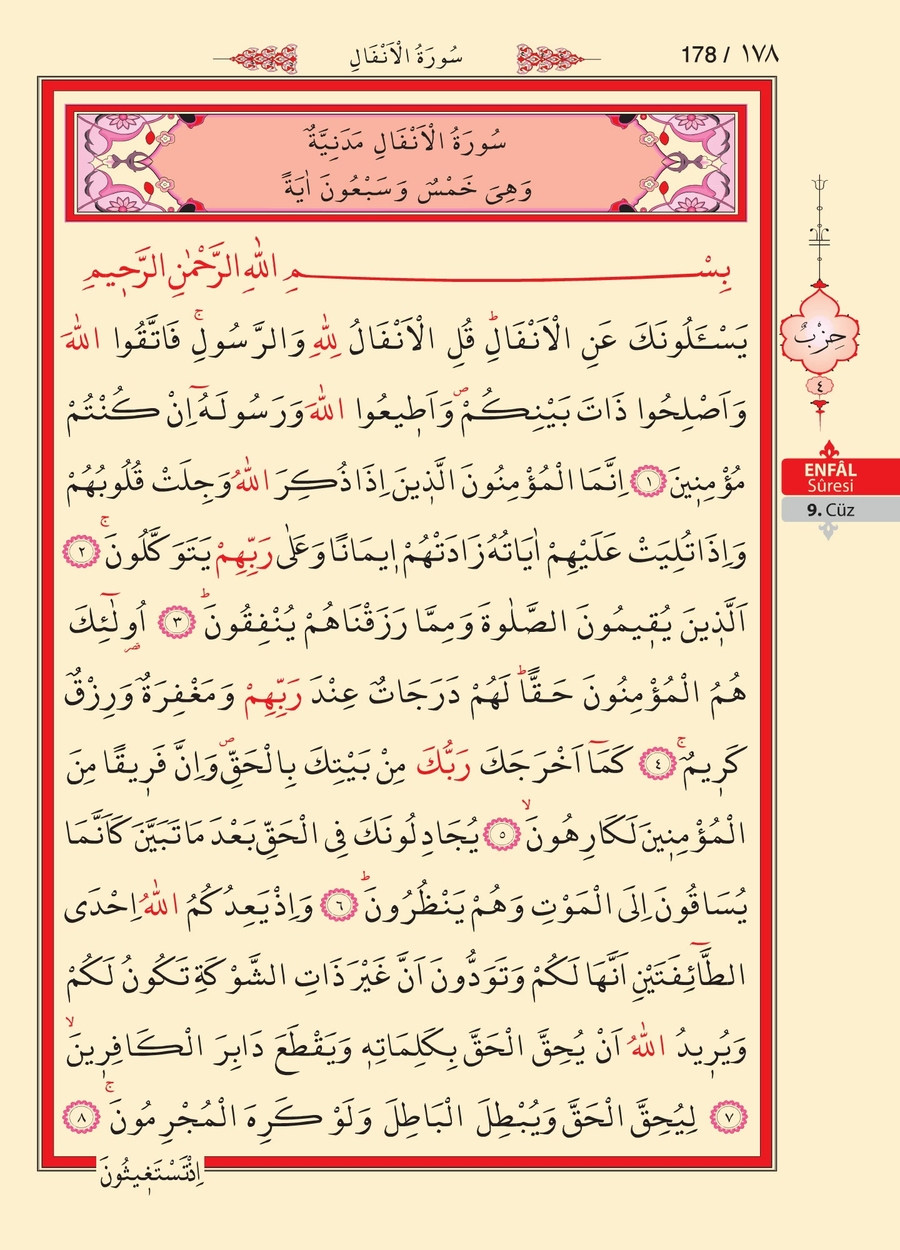 سُورَةُ الْاَنْفَالِ
178 / ١٧٨
سُورَةُ الْاَنْفَالِ مَدَنِيَّةٌ
وَهِىَ خَمْسٌ وَسَبْعُونَ اٰيَةً
بِسْمِ اللّٰهِ الرَّحْمٰنِ الرَّح۪يمِ
يَسْـَٔلُونَكَ عَنِ الْاَنْفَالِۜ قُلِ الْاَنْفَالُ لِلّٰهِ وَالرَّسُولِۚ فَاتَّقُوا اللّٰهَ
وَاَصْلِحُوا ذَاتَ بَيْنِكُمْۖ وَاَط۪يعُوا اللّٰهَ وَرَسُولَهُٓ اِنْ كُنْتُمْ
مُؤْمِن۪ينَ ﴿١﴾ اِنَّمَا الْمُؤْمِنُونَ الَّذ۪ينَ اِذَا ذُكِرَ اللّٰهُ وَجِلَتْ قُلُوبُهُمْ
وَاِذَا تُلِيَتْ عَلَيْهِمْ اٰيَاتُهُ زَادَتْهُمْ ا۪يمَانًا وَعَلٰى رَبِّهِمْ يَتَوَكَّلُونَۚ ﴿٢﴾
اَلَّذ۪ينَ يُق۪يمُونَ الصَّلٰوةَ وَمِمَّا رَزَقْنَاهُمْ يُنْفِقُونَۜ ﴿٣﴾ اُو۬لٰٓئِكَ
هُمُ الْمُؤْمِنُونَ حَقًّاۜ لَهُمْ دَرَجَاتٌ عِنْدَ رَبِّهِمْ وَمَغْفِرَةٌ وَرِزْقٌ
كَر۪يمٌۚ ﴿٤﴾ كَمَٓا اَخْرَجَكَ رَبُّكَ مِنْ بَيْتِكَ بِالْحَقِّۖ وَاِنَّ فَر۪يقًا مِنَ
الْمُؤْمِن۪ينَ لَكَارِهُونَۙ ﴿٥﴾ يُجَادِلُونَكَ فِى الْحَقِّ بَعْدَ مَا تَبَيَّنَ كَاَنَّمَا
يُسَاقُونَ اِلَى الْمَوْتِ وَهُمْ يَنْظُرُونَۜ ﴿٦﴾ وَاِذْ يَعِدُكُمُ اللّٰهُ اِحْدَى
الطَّٓائِفَتَيْنِ اَنَّهَا لَكُمْ وَتَوَدُّونَ اَنَّ غَيْرَ ذَاتِ الشَّوْكَةِ تَكُونُ لَكُمْ
وَيُر۪يدُ اللّٰهُ اَنْ يُحِقَّ الْحَقَّ بِكَلِمَاتِه۪ وَيَقْطَعَ دَابِرَ الْكَافِر۪ينَۙ
﴿٧﴾ لِيُحِقَّ الْحَقَّ وَيُبْطِلَ الْبَاطِلَ وَلَوْ كَرِهَ الْمُجْرِمُونَۚ ﴿٨﴾
اِذْتَسْتَغ۪يثُونَ
حِزْبٌ
٤
ENFÂL
Sûresi
9. Cüz